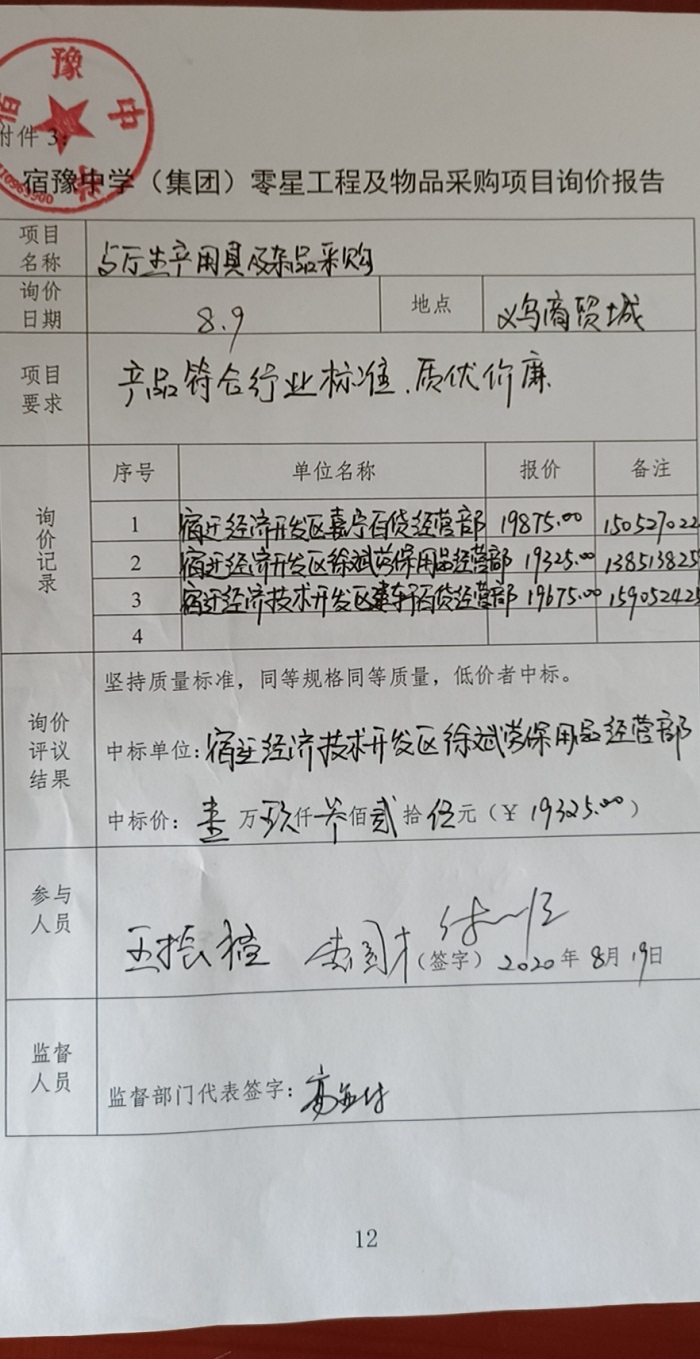 豫中
附件 3:
宿豫中学（集团）零星工程及物品采购项目询价报告
项目名称 与厅生产用具及杂品采购
询价日期 8.9 地点 义乌商贸城
项目要求 产品符合行业标准.质优价廉
询价记录 序号 单位名称 报价 备注
1 宿迁经济开发区嘉宁百货经营部 19875.00 150527022
2 宿迁经济开发区徐斌劳保用品经营部 19325.00 138513825
3 宿迁经济技术开发区建轩百货经营部 19675.00 159052425
4
询价评议结果 坚持质量标准，同等规格同等质量，低价者中标。
中标单位:宿迁经济技术开发区徐斌劳保用品经营部
中标价: 壹万玖仟叁佰贰拾伍元（¥ 19325.00）
参与人员 （签字）2020年8月19日
监督人员 监督部门代表签字:
12